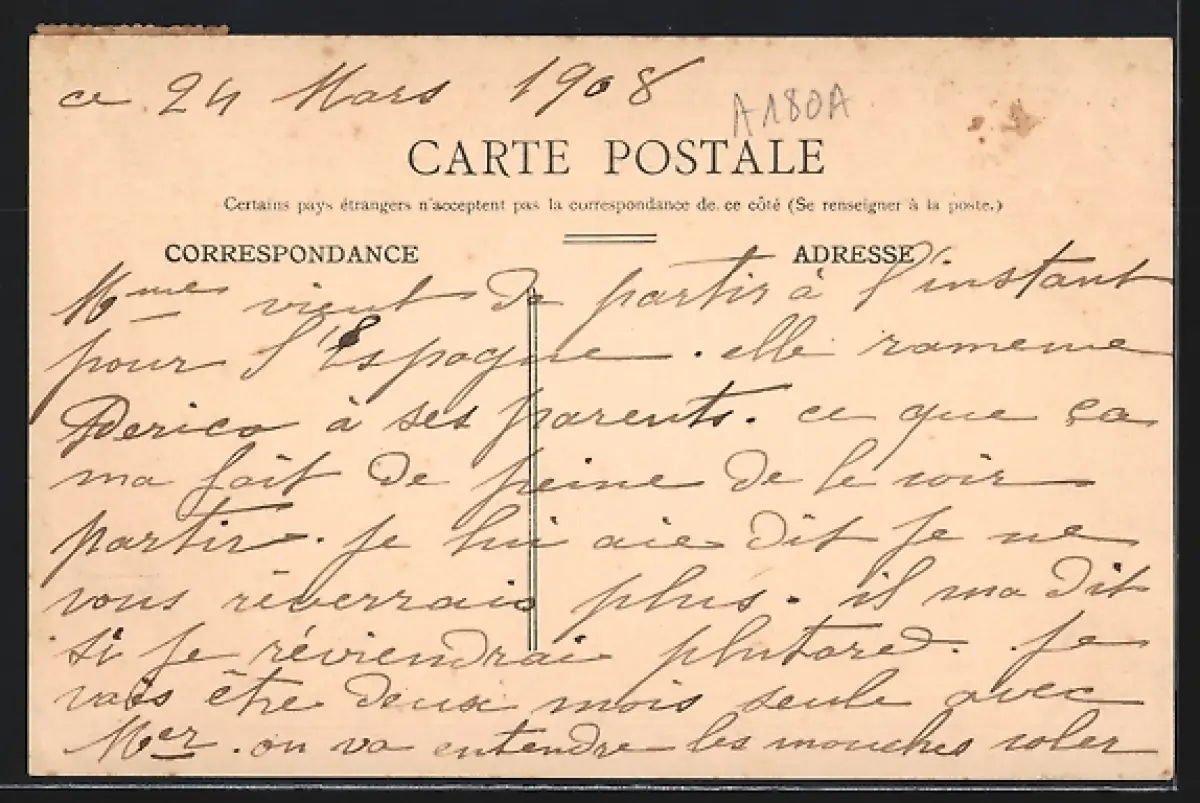 ce 24 Mars 1908
A180A
CARTE POSTALE
Certains pays étrangers n'acceptent pas la correspondance de ce côté (Se renseigner à la poste.)
CORRESPONDANCE
ADRESSE
Mme vient de partir à l'instant
pour l'Espagne. elle ramene
Perico à ses parents. ce que ça
ma fait de peine de le voir
partir. je lui aie dit je ne
vous réverrais plus. il ma dit
si je réviendrai plutard. je
vais être deux mois seule avec
Mer. on va entendre les mouches voler